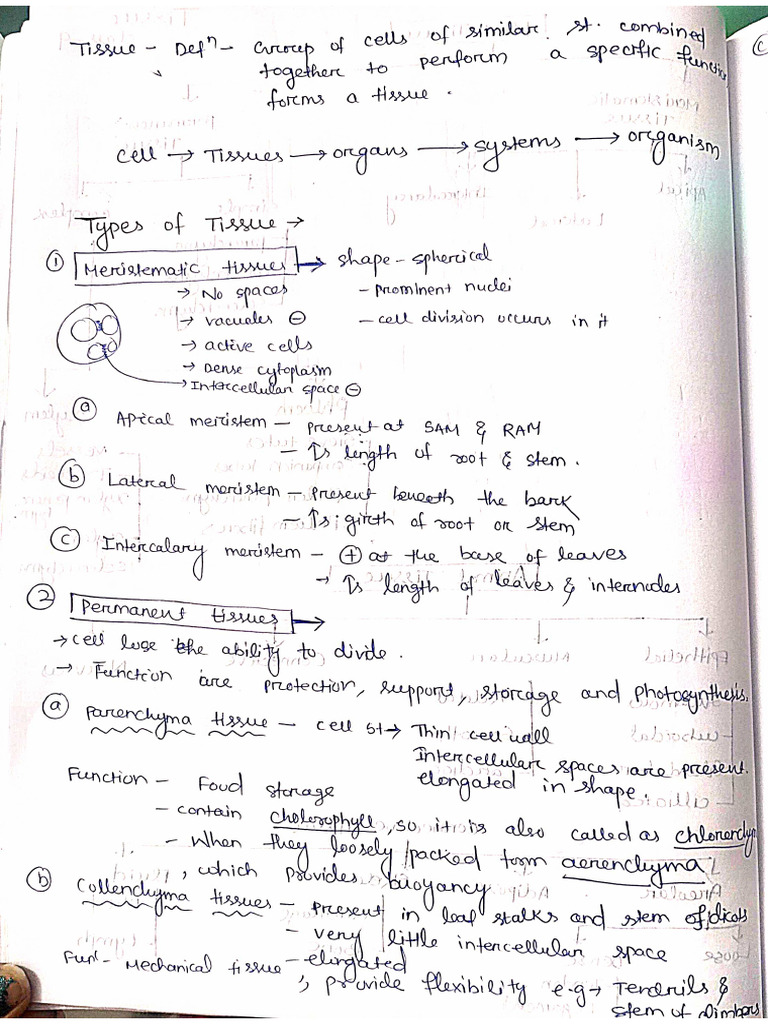 Tissue - Defn - Group of cells of similar st. combined
together to perform a specific function
forms a tissue.
cell → Tissues → organs → systems → organism
Types of Tissue →
① Meristematic tissues → shape - spherical
→ No spaces - prominent nuclei
→ vacuoles ⊖ - cell division occurs in it
→ active cells
→ Dense cytoplasm
→ Intercellular space ⊖
ⓐ Apical meristem - present at SAM & RAM
- ↑s length of root & stem.
ⓑ Lateral meristem - present beneath the bark
- ↑s girth of root or stem
ⓒ Intercalary meristem - ⊕ at the base of leaves
→ ↑s length of leaves & internodes
② Permanent tissues →
→ cell lose the ability to divide.
→ Function are protection, support, storage and photosynthesis.
ⓐ Parenchyma tissue - cell st → Thin cell wall
Intercellular spaces are present.
elongated in shape.
Function - Food storage
- contain cholorophyll, so it is also called as chlorenchy
- When they loosely packed form aerenchyma
, which provides buoyancy
ⓑ Collenchyma tissues - present in leaf stalks and stem of dicots
- very little intercellular space
- elongated
Funn - Mechanical tissue, provide flexibility e.g → Tendrils &
stem of climbers